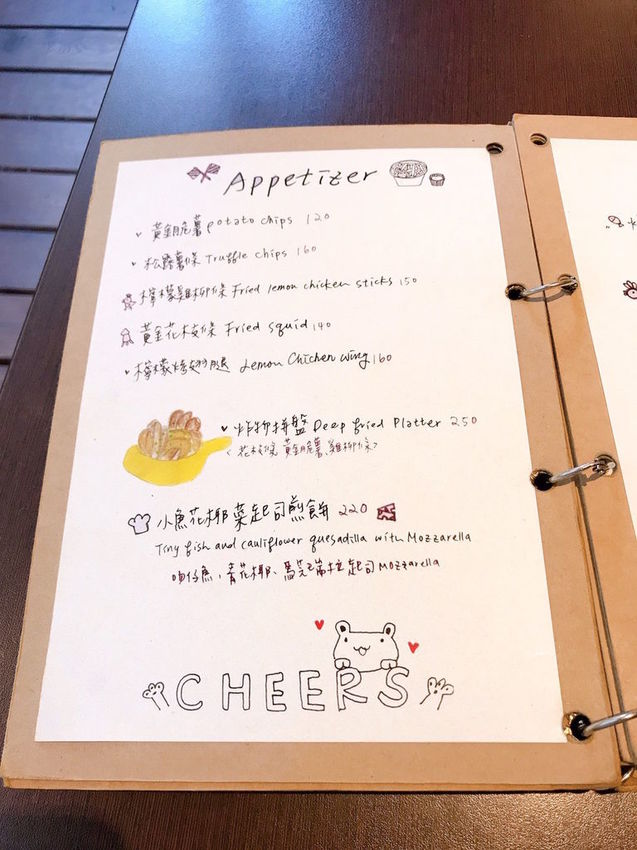 Appetizer
黃金脆薯 potato chips 120
松露薯條 Truffle chips 160
檸檬雞柳條 Fried lemon chicken sticks 150
黃金花枝條 Fried squid 140
檸檬烤翅腿 Lemon Chicken wing 160
炸物拼盤 Deep fried Platter 250
(花枝條 黃金脆薯、雞柳條)
小魚花椰菜起司煎餅 220
Tiny fish and cauliflower quesadilla with Mozzarella
吻仔魚、青花椰、馬芝瑞拉起司 Mozzarella
CHEERS